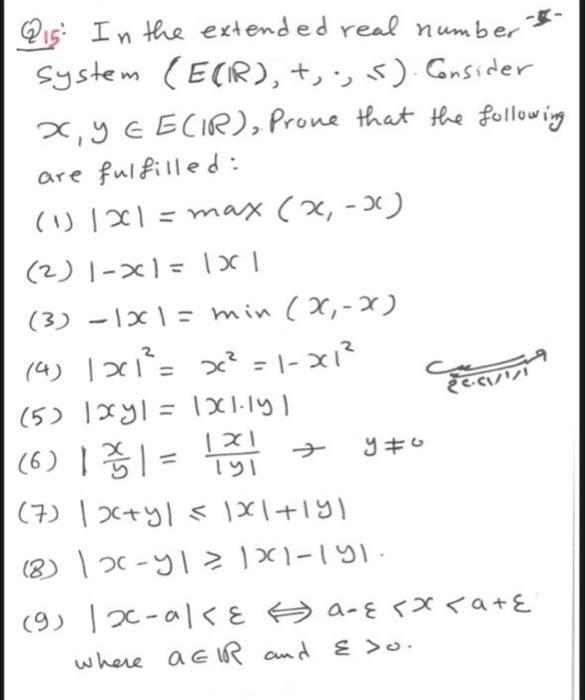 Q15: In the extended real number -5-
System (E(ℝ), +, ·, ≤). Consider
x, y ∈ E(ℝ), Prove that the following
are fulfilled:
(1) |x| = max (x, -x)
(2) |-x| = |x|
(3) -|x| = min (x, -x)
(4) |x|² = x² = |-x|²
(5) |xy| = |x|·|y|
(6) |x/y| = |x|/|y| → y ≠ 0
(7) |x+y| ≤ |x|+|y|
(8) |x-y| ≥ |x|-|y|.
(9) |x-a| < ε ⟺ a-ε < x < a+ε
where a ∈ ℝ and ε > 0.